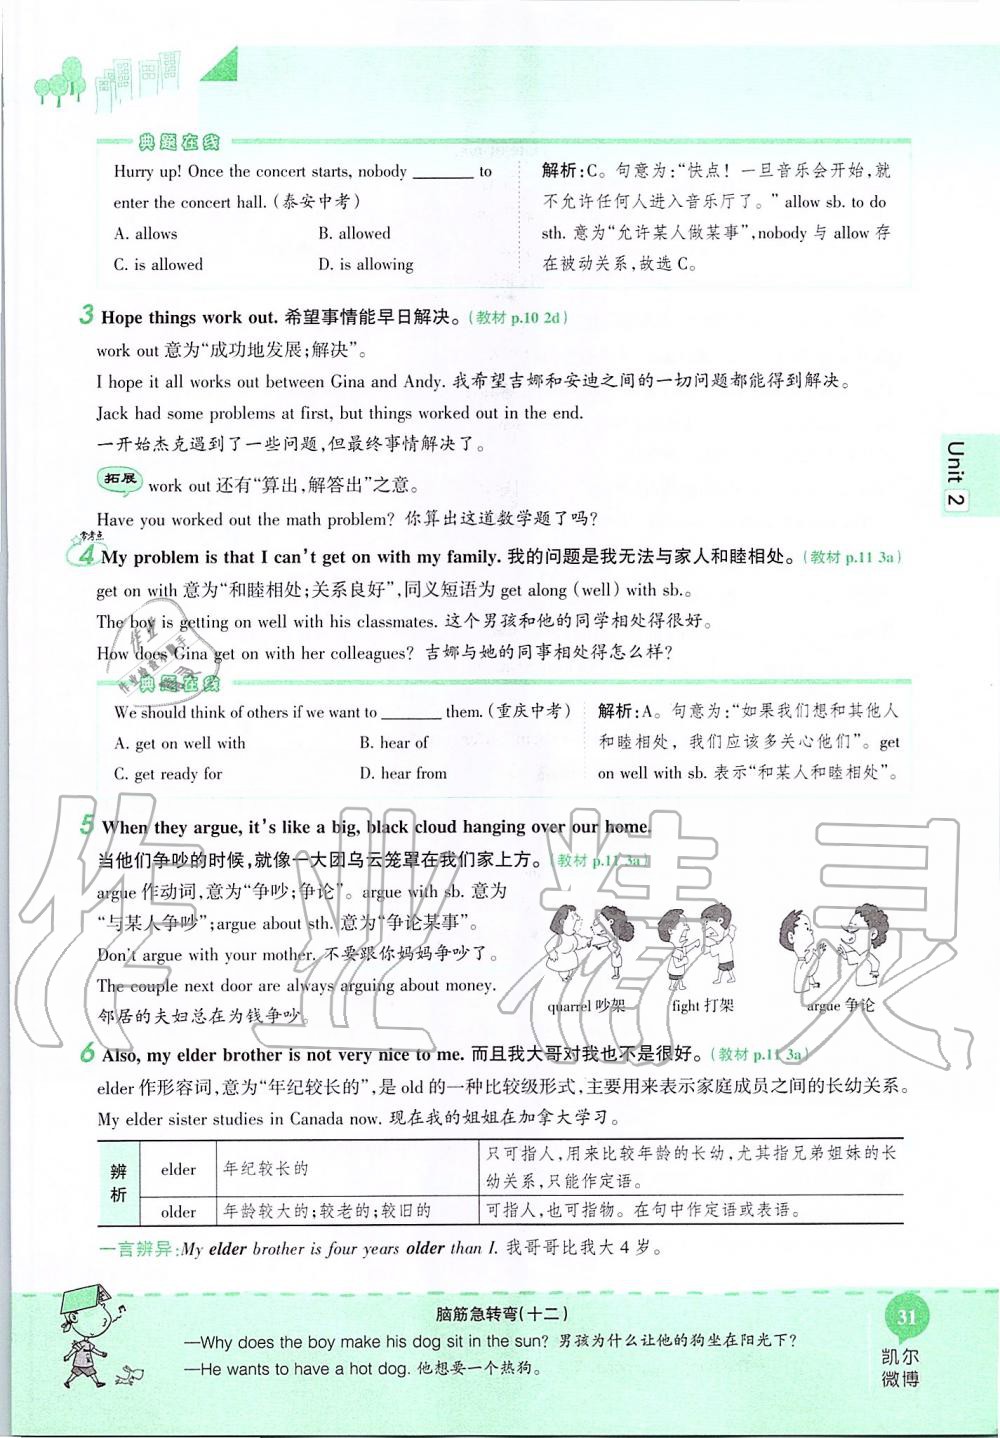 典题在线
Hurry up! Once the concert starts, nobody ________ to
enter the concert hall.(泰安中考)
A. allows B. allowed
C. is allowed D. is allowing
解析:C。句意为:“快点！一旦音乐会开始,就
不允许任何人进入音乐厅了。”allow sb. to do
sth. 意为“允许某人做某事”,nobody 与 allow 存
在被动关系,故选 C。
3 Hope things work out. 希望事情能早日解决。(教材 p.10 2d)
work out 意为“成功地发展;解决”。
I hope it all works out between Gina and Andy. 我希望吉娜和安迪之间的一切问题都能得到解决。
Jack had some problems at first, but things worked out in the end.
一开始杰克遇到了一些问题,但最终事情解决了。
拓展 work out 还有“算出,解答出”之意。
Have you worked out the math problem? 你算出这道数学题了吗?
常考点
4 My problem is that I can't get on with my family. 我的问题是我无法与家人和睦相处。(教材 p.11 3a)
get on with 意为“和睦相处;关系良好”,同义短语为 get along (well) with sb.。
The boy is getting on well with his classmates. 这个男孩和他的同学相处得很好。
How does Gina get on with her colleagues? 吉娜与她的同事相处得怎么样?
典题在线
We should think of others if we want to ________ them.(重庆中考)
A. get on well with B. hear of
C. get ready for D. hear from
解析:A。句意为:“如果我们想和其他人
和睦相处，我们应该多关心他们”。get
on well with sb. 表示“和某人和睦相处”。
5 When they argue, it's like a big, black cloud hanging over our home.
当他们争吵的时候,就像一大团乌云笼罩在我们家上方。(教材 p.11 3a)
argue 作动词,意为“争吵;争论”。argue with sb. 意为
“与某人争吵”;argue about sth. 意为“争论某事”。
Don't argue with your mother. 不要跟你妈妈争吵了。
The couple next door are always arguing about money.
邻居的夫妇总在为钱争吵。
quarrel 吵架 fight 打架 argue 争论
6 Also, my elder brother is not very nice to me. 而且我大哥对我也不是很好。(教材 p.11 3a)
elder 作形容词,意为“年纪较长的”,是 old 的一种比较级形式,主要用来表示家庭成员之间的长幼关系。
My elder sister studies in Canada now. 现在我的姐姐在加拿大学习。
辨析
elder 年纪较长的 只可指人,用来比较年龄的长幼,尤其指兄弟姐妹的长
幼关系,只能作定语。
older 年龄较大的;较老的;较旧的 可指人,也可指物。在句中作定语或表语。
一言辨异:My elder brother is four years older than I. 我哥哥比我大 4 岁。
脑筋急转弯(十二)
—Why does the boy make his dog sit in the sun? 男孩为什么让他的狗坐在阳光下?
—He wants to have a hot dog. 他想要一个热狗。
Unit 2
31
凯尔
微博
作业精灵